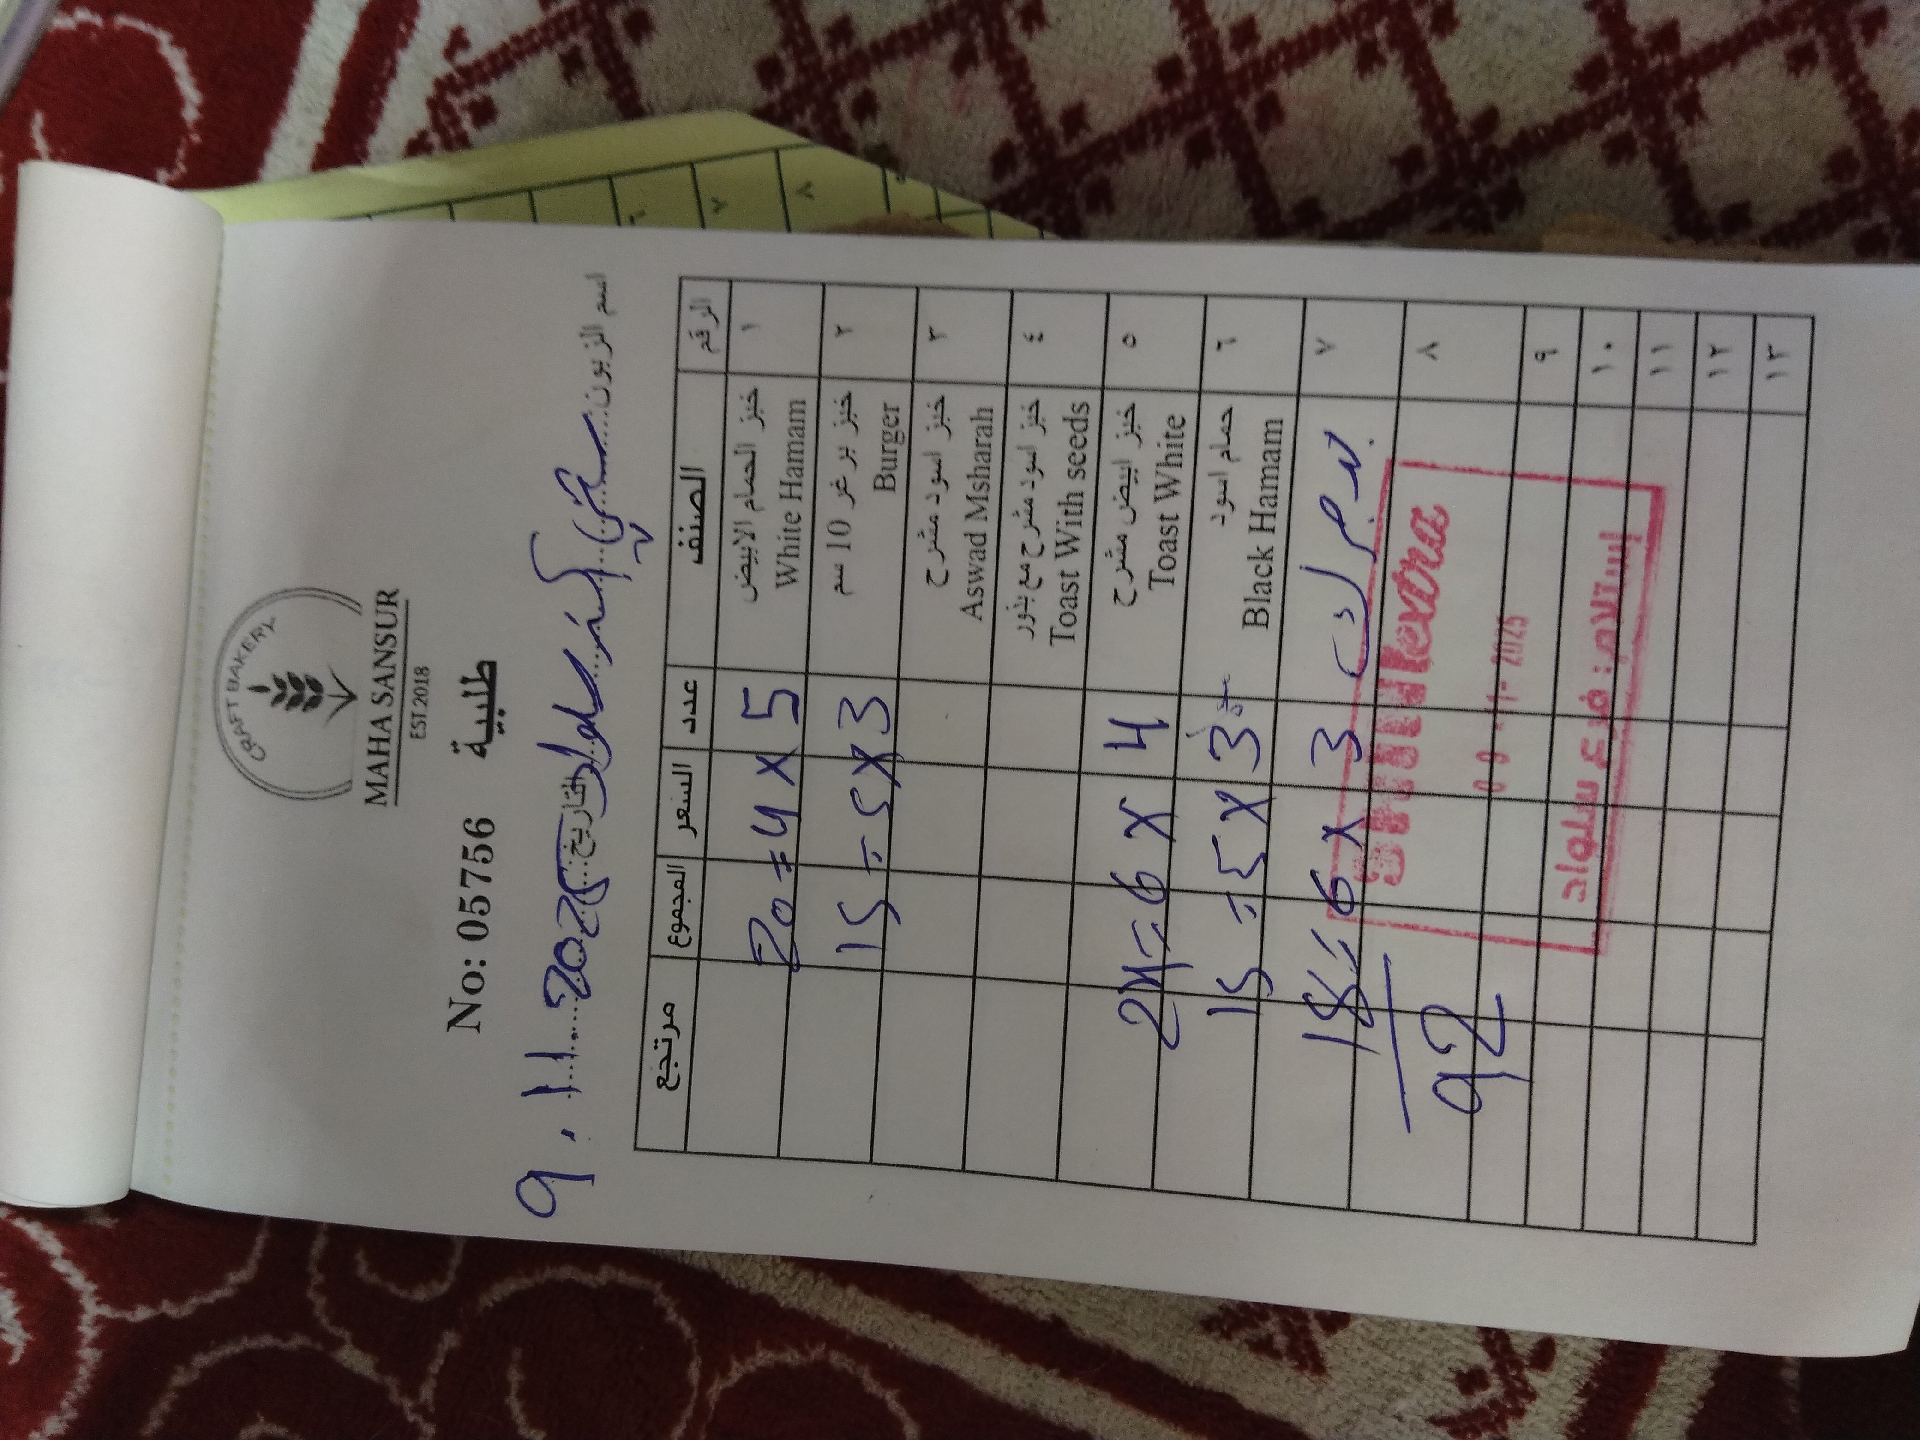 CRAFT BAKERY
MAHA SANSUR
EST 2018
No: 05756 طلبية
اسم الزبون التاريخ 9.11.2025
الرقم الصنف عدد السعر المجموع مرتجع
١ خبز الحمام الابيض White Hamam 5 x 4 = 20
٢ خبز برغر 10 سم Burger 3 x 5 = 15
٣ خبز اسود مشرح Aswad Msharah
٤ خبز اسود مشرح مع بذور Toast With seeds
٥ خبز ابيض مشرح Toast White 4 x 6 = 24
٦ حمام اسود Black Hamam 3 x 5 = 15
٧ 3 x 6 = 18
٨ 92
٩
١٠
١١
١٢
١٣
extra
09-11-2025
إستلام: فرع سلواد